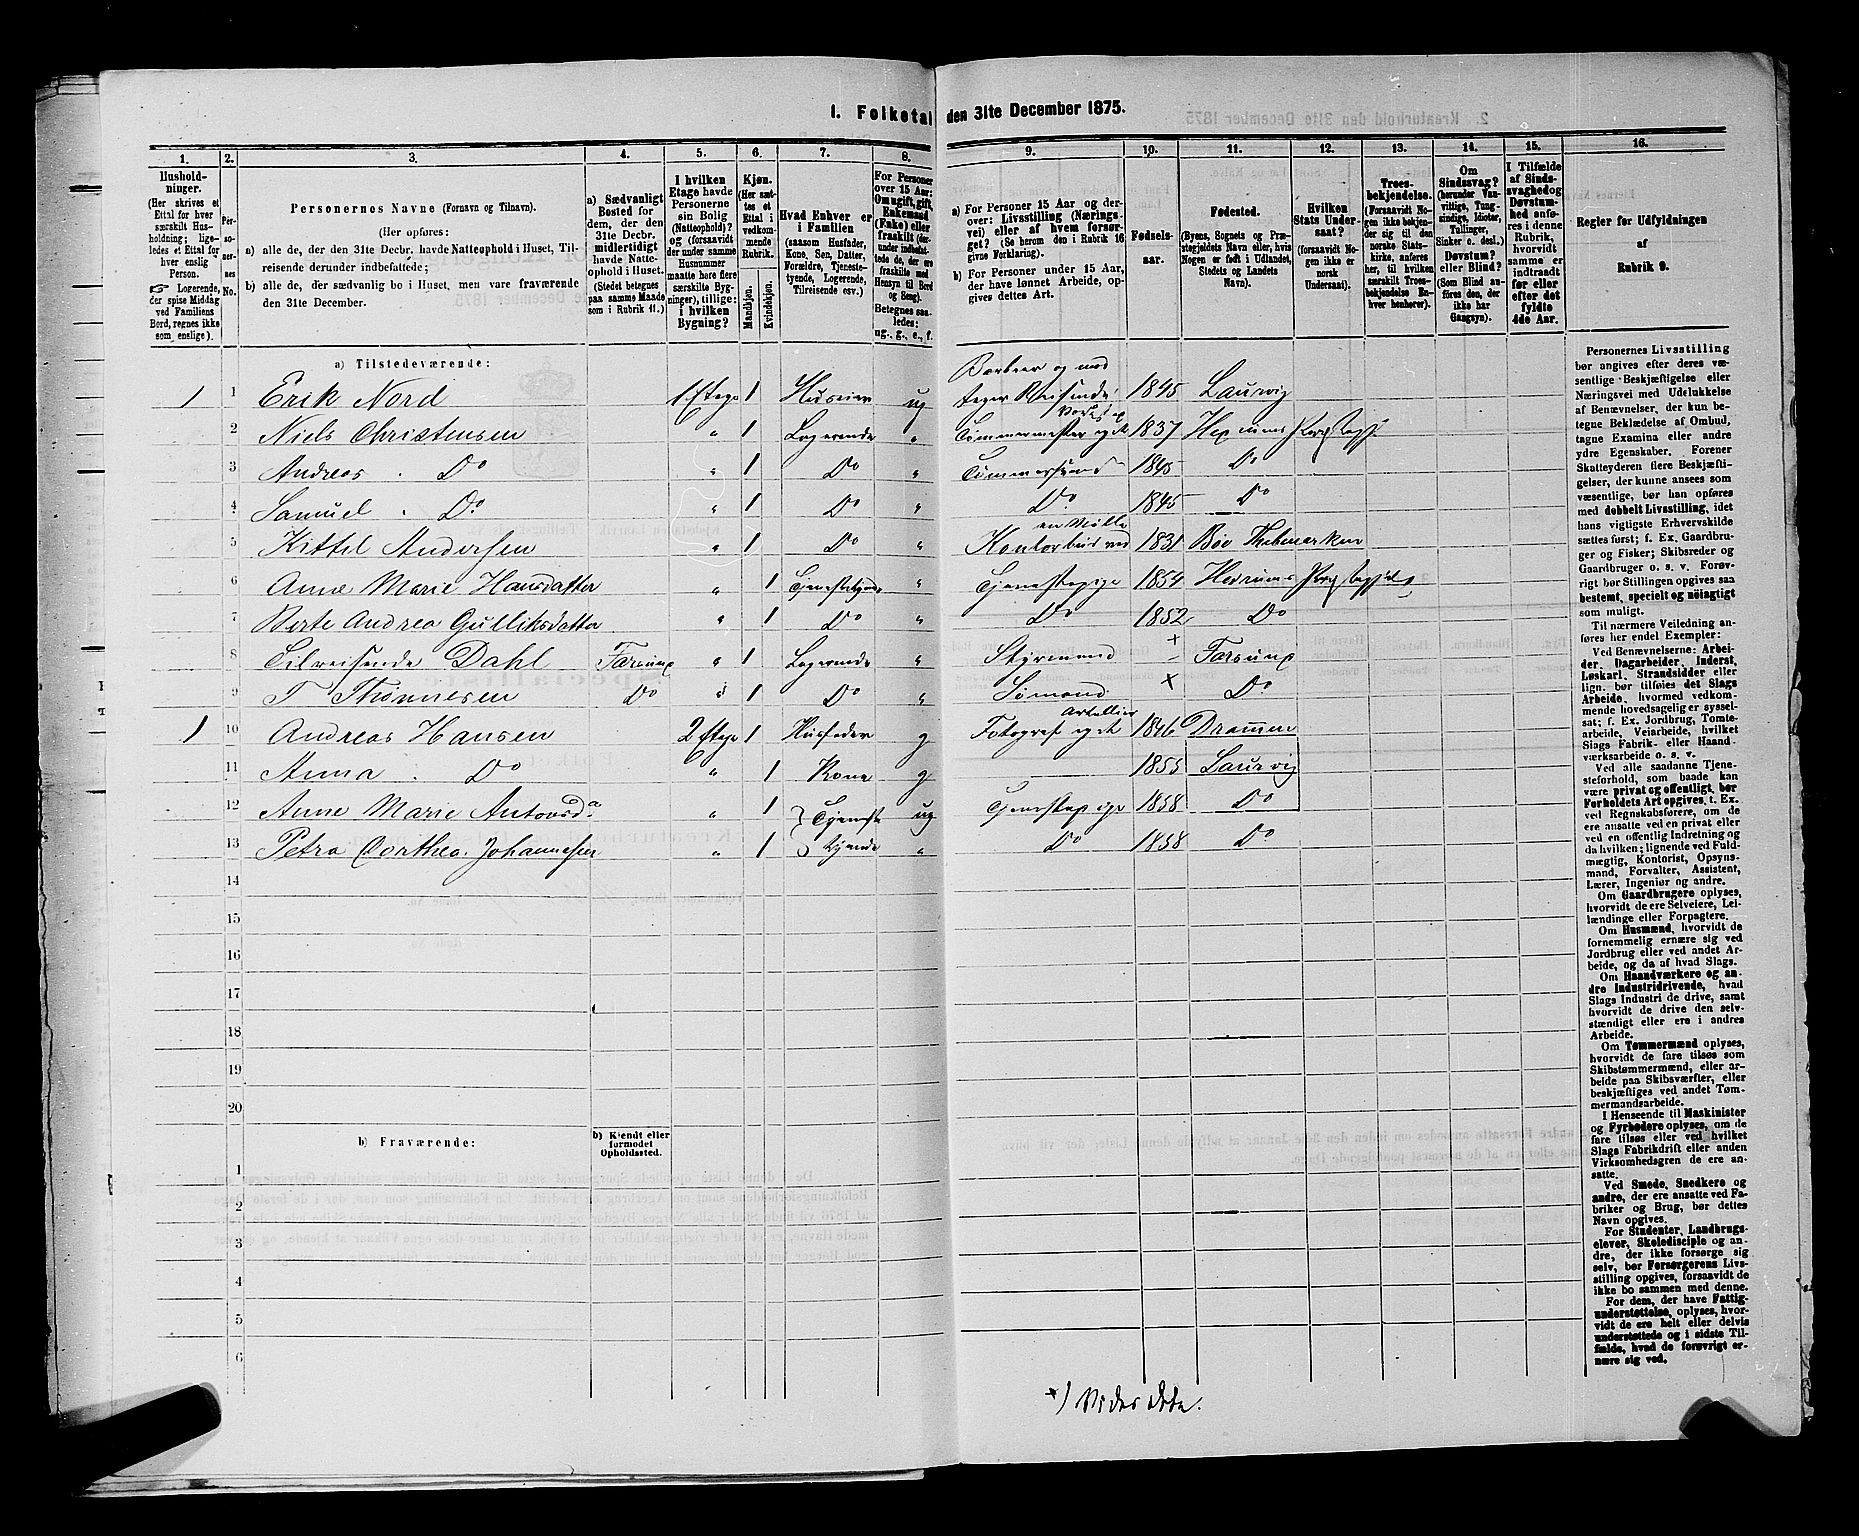 1. Folketal den 31te December 1875.
1. 2. 3. 4. 5. 6. 7. 8. 9. 10. 11. 12. 13. 14. 15. 16.
Husholdninger. (Her skrives et Ettal for hver særskilt Husholdning; ligeledes et Ettal for hver enslig Person. ☞ Logerende, der spise Middag ved Familiens Bord, regnes ikke som enslige).
Personernes No.
Personernes Navne (Fornavn og Tilnavn).
(Her opføres:
a) alle de, der den 31te Decbr. havde Natteophold i Huset, Tilreisende derunder indbefattede;
b) alle de, der sædvanlig bo i Huset, men vare fraværende den 31te December.
a) Sædvanligt Bosted for dem, der den 31te Decbr. midlertidigt havde Natteophold i Huset. (Stedet betegnes paa samme Maade som i Rubrik 11.)
I hvilken Etage havde Personerne sin Bolig (Natteophold)? og (forsaavidt der under samme Husnummer maatte høre flere særskilte Bygninger), tillige: i hvilken Bygning?
Kjøn. (Her sættes et Ettal i vedkommende Rubrik.
Mandkjøn. Kvindekjøn.
Hvad Enhver er i Familien (saasom Husfader, Kone, Søn, Datter, Forældre, Tjenestetyende, Logerende, Tilreisende osv.)
For Personer over 15 Aar: Om ugift, gift, Enkemand (Enke) eller fraskilt (derunder indbefattede de, der ere fraskilte med Hensyn til Bord og Seng). Betegnes saaledes: ug., g., e., f.
a) For Personer 15 Aar og derover: Livsstilling (Næringsvei) eller af hvem forsørget? (Se herom den i Rubrik 16 givne Forklaring).
b) For Personer under 15 Aar, der have lønnet Arbeide, opgives dettes Art.
Fødselsaar.
Fødested. (Byens, Sognets og Præstegjeldets Navn eller, hvis Nogen er født i Udlandet, Stedets og Landets Navn).
Hvilken Stats Undersaat? (forsaavidt Nogen ikke er norsk Undersaat).
Troesbekjendelse. (Forsaavidt Nogen ikke bekjender sig til den norske Statskirke, anføres her, til hvilken særskilt Troesbekjendelse Enhver henhører).
Om Sindssvag? (herunder Vanvittige, Tungsindige, Idioter, Tullinger, Sinker o. desl.). Døvstum? eller Blind? (Som Blind anføres den, der ikke har Gangsyn).
I Tilfælde af Sindssvaghed og Døvstumhed anføres i denne Rubrik, hvorvidt samme er indtraadt før eller efter det fyldte 4de Aar.
Regler for Udfyldningen af Rubrik 9.
a) Tilstedeværende:
1 1 Erik Nord 1 Etage 1 Huseier ug Barbeer og modtager Reisende 1845 Laurvig
2 Niels Christensen " 1 Logerende " Tømmermester 1837
3 Andreas . Do " 1 Do " 1845 Do
4 Samuel . Do " 1 Do " Do 1845 Do
5 Kittil Andersen " 1 Do " en Mølle 1831 Bøe Thelemarken
6 Anne Marie Hansdatter " 1 " Tjenestepige 1854
7 Berte Andrea Gulliksdatter " 1 Do " Do 1852 Do
8 Tilreisende Dahl Farsund " 1 Logerende " Styrmand + – Farsund
9 T Thønnesen Do " 1 Do " Sømand × Do
1 10 Andreas Hansen 2 Etage 1 Husfader g Fotograf 1846 Drammen
11 Anna . Do " 1 Kone g 1855 Laurvig
12 Anne Marie Antonsd. " 1 Tjeneste ug Tjenestepige 1858 Do
13 Petra Dorthea Johannesen " 1 tyende " Do 1858 Do
14
15
16
17
18
19
20
b) Fraværende:
b) Kjendt eller formodet Opholdssted.
1
2
3
4
5
6
Personernes Livsstilling
bør angives efter deres væ-
sentlige Beskjæftigelse eller
Næringsvei med Udelukkelse
af Benævnelser, der kun be-
tegne Beklædelse af Ombud,
tagne Examina eller andre
ydre Egenskaber. Forener
Skatteyderen flere Beskjæfti-
gelser, der kunne ansees som
væsentlige, bør han opføres
med dobbelt Livsstilling, idet
hans vigtigste Erhvervskilde
sættes først; f. Ex. Gaardbru-
ger og Fisker; Skibsreder og
Gaardbruger o. s. v. Forøv-
rigt bør Stillingen opgives saa
bestemt, specielt og nøiagtigt
som muligt.
Til nærmere Veiledning an-
føres her endel Exempler:
Ved Benævnelserne: Arbei-
der, Dagarbeider, Inderst,
Løskarl, Strandsidder eller
lign. bør tilføies det Slags
Arbeide, hvormed vedkom-
mende hovedsagelig er syssel-
sat; f. Ex. Jordbrug, Tomte-
arbeide, Veiarbeide, hvilket
Slags Fabrik- eller Haand-
værksarbeide o. s. v.
Ved alle saadanne Tjene-
steforhold, som baade kan
være privat og offentligt, bør
Forholdets Art opgives, t. Ex.
ved Regnskabsførere, om de
ere ansatte ved en privat eller
ved en offentlig Indretning og
da hvilken; lignende ved Fuld-
mægtig, Kontorist, Opsyns-
mand, Forvalter, Assistent,
Lærer, Ingeniør og andre.
Om Gaardbrugere oplyses,
hvorvidt de ere Selveiere, Lei-
lændinge eller Forpagtere.
Om Husmænd, hvorvidt de
fornemmelig ernære sig ved
Jordbrug eller ved andet Ar-
beide, og da af hvad Slags.
Om Haandværkere og an-
dre Industridrivende, hvad
Slags Industri de drive, samt
hvorvidt de drive den selv-
stændigt eller ere i andres
Arbeide.
Om Tømmermænd oplyses,
hvorvidt de fare tilsøs som
Skibstømmermænd, eller ar-
beide paa Skibsværfter, eller
beskjæftiges ved andet Tøm-
mermandsarbeide.
I Henseende til Maskinister
og Fyrbødere oplyses, om de
fare tilsøs eller ved hvilket
Slags Fabrikdrift eller anden
Virksomhedsgren de ere an-
satte.
Ved Smede, Snedkere og
andre, der ere ansatte ved Fa-
briker og Brug, bør dettes
Navn opgives.
For Studenter, Landbrugs-
elever, Skoledisciple og an-
dre, der ikke forsørge sig
selv, bør Forsørgerens Livs-
stilling opgives, forsaavidt de
ikke bo sammen med denne.
For dem, der have Fattig-
understøttelse, oplyses, hvor-
vidt de ere helt eller delvis
understøttede og i sidste Til-
fælde, hvad de forøvrigt er-
nære sig ved.